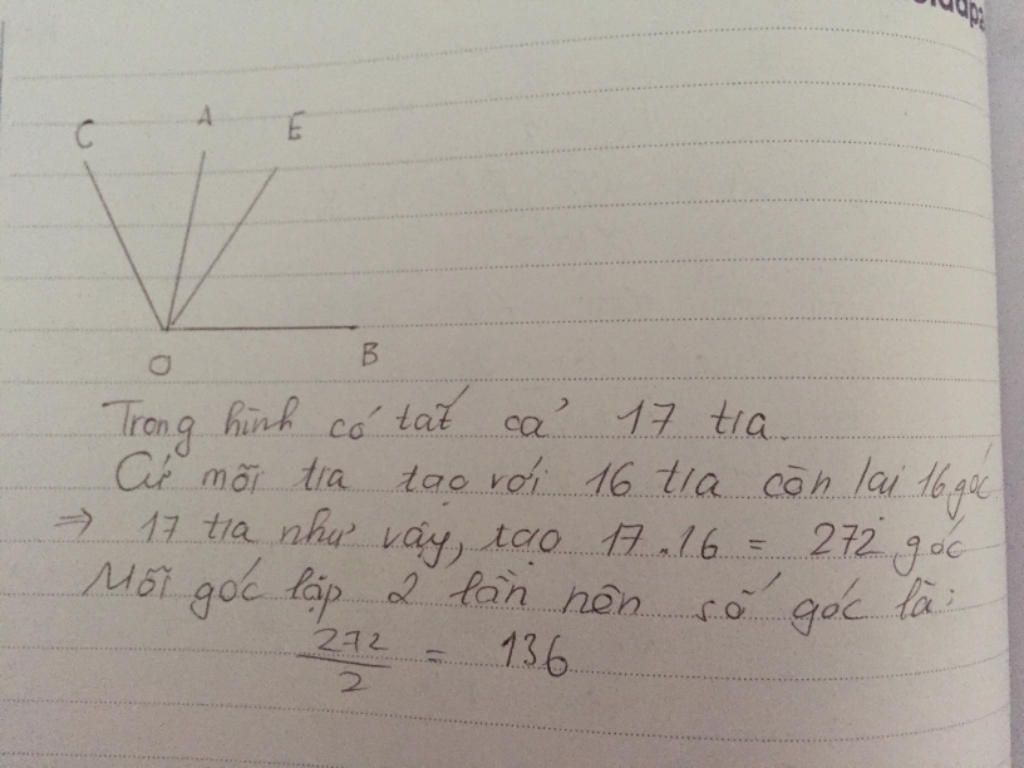 C A E
O B
Trong hình có tất cả 17 tia.
Cứ mỗi tia tạo với 16 tia còn lại 16 góc
⇒ 17 tia như vậy, tạo 17.16 = 272 góc
Mỗi góc lặp 2 lần nên số góc là:
272/2 = 136